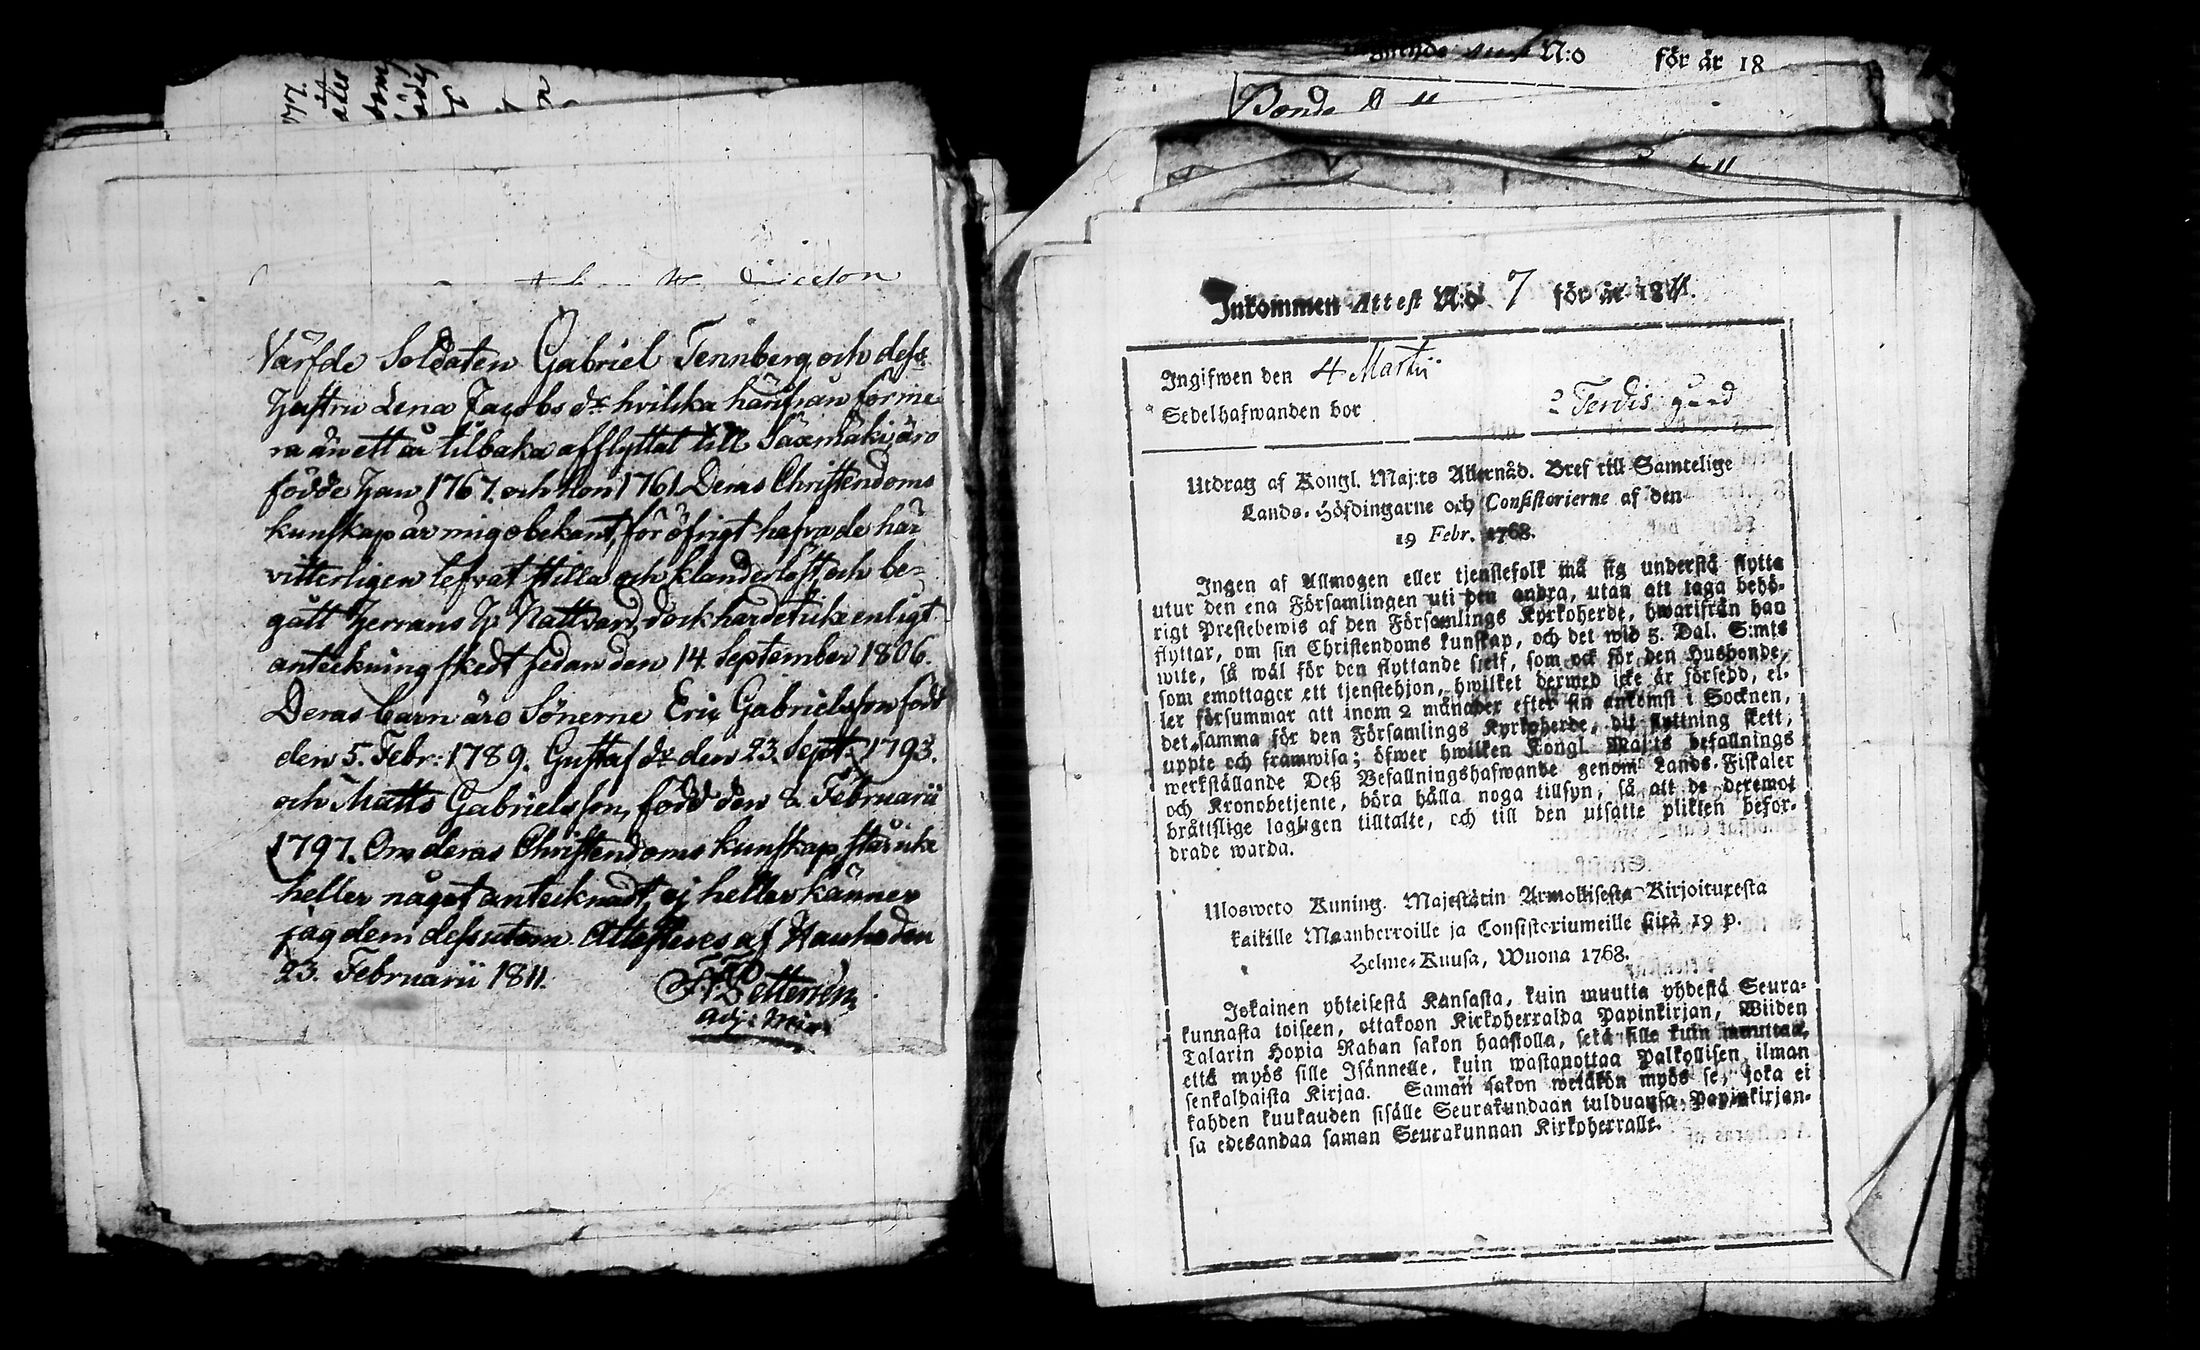 Värfde Soldaten Gabriel Tennberg och dess
Hustru Lena Jacobs dr hvilka härifrån för me
ra än ett år tilbaka afflyttat till Säxmäki, äro
födde Han 1767. och Hon 1761. Deras Christendoms
kunskap är mig obekant, för öfrigt hafva de här
vitterligen lefvat stilla och klanderlöst, och be-
gått Herrans H. Nattvard, dock har det icke enligt
anteckning skedt sedan den 14. September 1806.
Deras barn äro Sönerne Eric Gabrielsson född
den 5. Febr: 1789. Gustaf dr den 23. Sept: 1793.
och Matts Gabrielsson, född den 2. Februarii
1797. Om deras Christendoms kunskap står icke
heller något antecknadt, ej heller känner
jag dem dessutom. Attesteres af Hauho den
23. Februarii 1811.
Adj: Min:
N:o för år 18
Bonde
Inkommen Attest N:o 7 för år 1811.
Ingifwen den 4 Martii
Sedelhafwanden bor
Utdrag af Kongl. Maj:ts Allernåd. Bref till Samtelige
Lands-Höfdingarne och Consistorierne af den
19 Febr. 1768.
Ingen af Allmogen eller tjenstefolk må sig understå flytta
utur den ena Församlingen uti den andra, utan att taga behö-
rigt Prestebewis af den Församlings Kyrkoherde, hwarifrån han
flyttar, om sin Christendoms kunskap, och det wid 5. Dal. S:mts
wite, så wäl för den flyttande sielf, som ock för den Husbonde,
som emottager ett tjenstehjon, hwilket dermed icke är försedd, el-
ler försummar att inom 2 månader efter sin ankomst i Socknen,
det samma för den Församlings Kyrkoherde, dit flyttning skett,
uppte och framwisa; öfwer hwilken Kongl. Maj:ts befallnings
werkställande Deß Befallningshafwande genom Lands-Fiskaler
och Kronobetjente, böra hålla noga tillsyn, så att de deremot
bråttslige lagligen tilltalte, och till den utsatte plikten befor-
drade warda.
Uloswetо Kuning. Majestätin Armollisesta Kirjoituxesta
kaikille Maanherroille ja Consistoriumeille siitä 19 p.
Helme-Kuusa, Wuona 1768.
Jokainen yhteisestä Kansasta, kuin muutta yhdestä Seura-
kunnasta toiseen, ottakoon Kirkoherralda Papinkirjan, Wiiden
Talarin Hopia Rahan sakon haastolla, sekä sille kuin muuttaa,
että myös sille Isännelle, kuin wastanottaa Palkollisen, ilman
senkaldaista Kirjaa. Saman sakon wetäkön myös se, joka ei
kahden kuukauden sisälle Seurakundaan tulduansa, Papinkirjan-
sa edesandaa saman Seurakunnan Kirkoherralle.